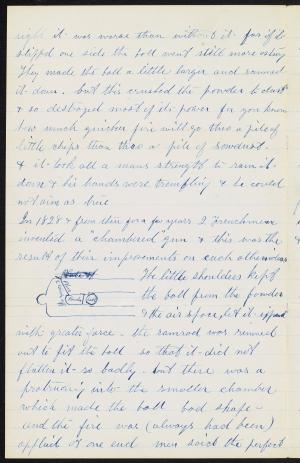 right it was worse than without it for if it
slipped one side the ball went still more astray
They made the ball a little larger and rammed
it down. but this crushed the powder to dust
& so destroyed most of its power for you know
how much quicker fire will go thro a pile of
little chips than thro a pile of sawdust.
& it took all a mans strength to ram it
down & his hands were trembling & he could
not aim as true
In 1828 & from then for a few years 2 Frenchmen
invented a "chambered" gun & this was the
result of their improvements on each others ideas
The little shoulders kept
the ball from the powder
& the air space, let it expand
with greater force. the ramrod was reamed
out to fit the ball so that it did not
flatten it so badly. but there was a
protruding into the smaller chamber
which made the ball bad shape
and the fire was (always had been)
applied at one end men said the perfect